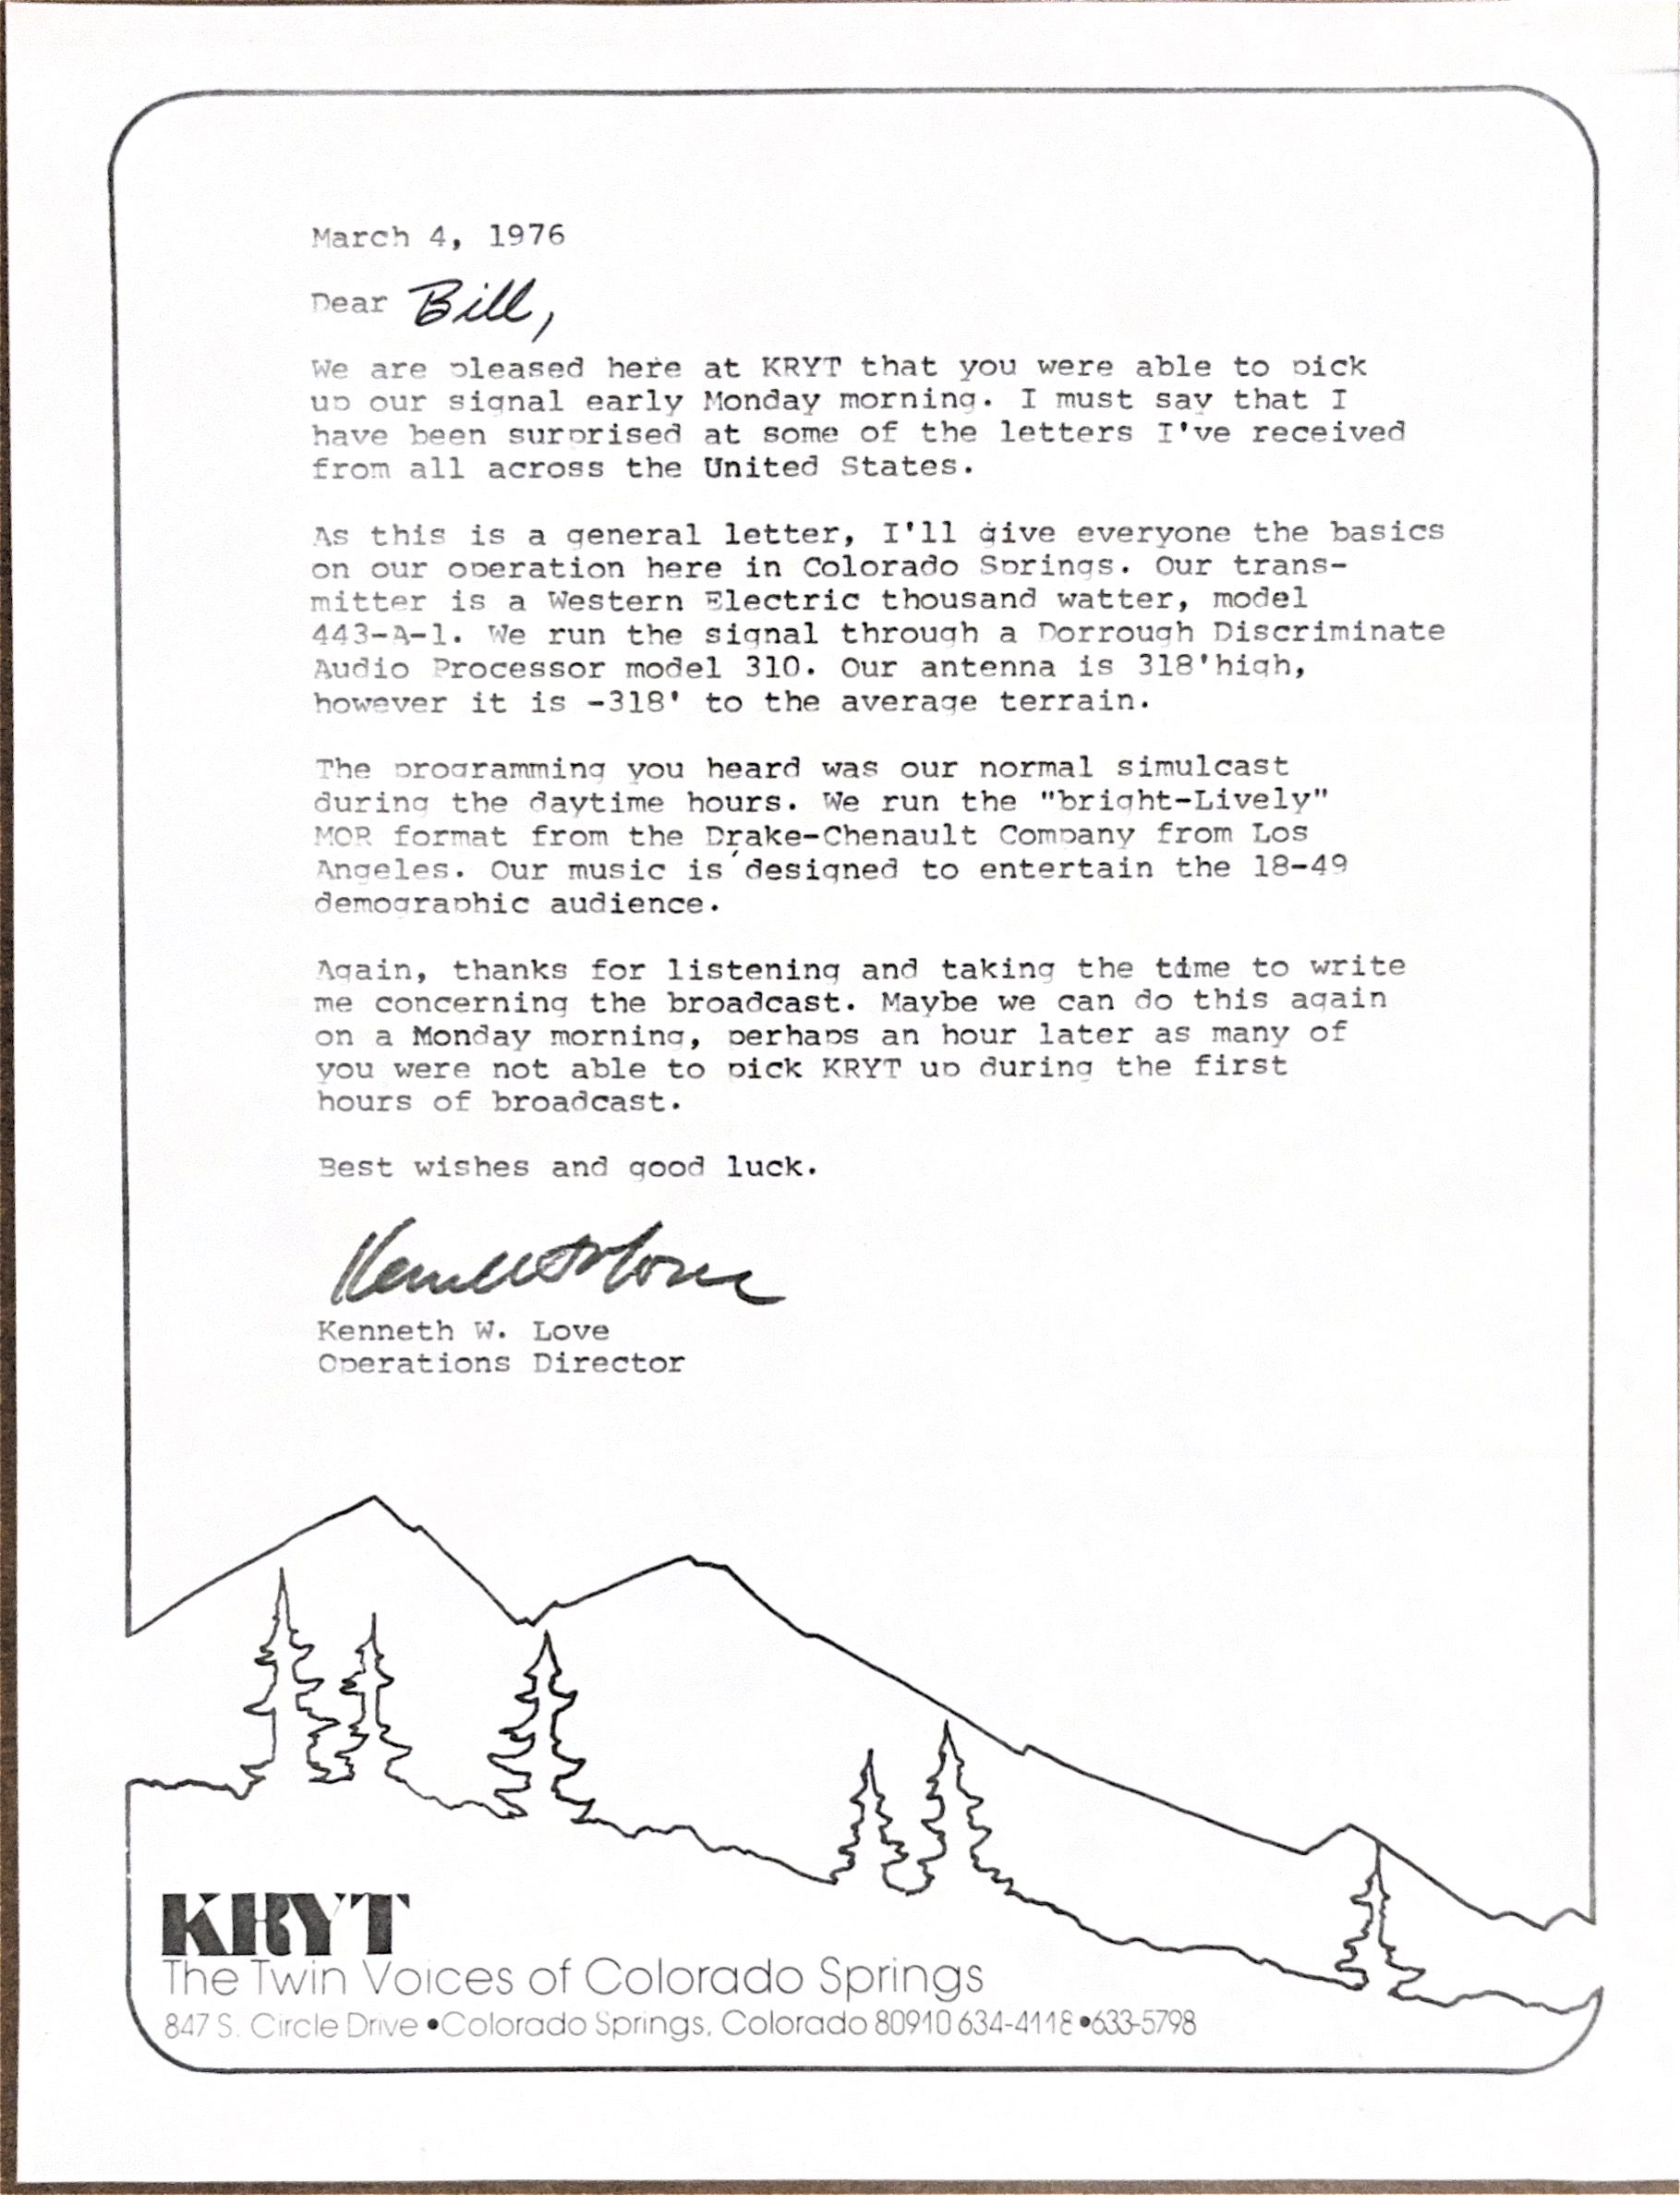 March 4, 1976
Dear Bill,
We are pleased here at KRYT that you were able to pick
up our signal early Monday morning. I must say that I
have been surprised at some of the letters I've received
from all across the United States.
As this is a general letter, I'll give everyone the basics
on our operation here in Colorado Springs. Our trans-
mitter is a Western Electric thousand watter, model
443-A-1. We run the signal through a Dorrough Discriminate
Audio Processor model 310. Our antenna is 318'high,
however it is -318' to the average terrain.
The programming you heard was our normal simulcast
during the daytime hours. We run the "bright-Lively"
MOR format from the Drake-Chenault Company from Los
Angeles. Our music is designed to entertain the 18-49
demographic audience.
Again, thanks for listening and taking the time to write
me concerning the broadcast. Maybe we can do this again
on a Monday morning, perhaps an hour later as many of
you were not able to pick KRYT up during the first
hours of broadcast.
Best wishes and good luck.
Kenneth W. Love
Kenneth W. Love
Operations Director
KRYT
The Twin Voices of Colorado Springs
847 S. Circle Drive •Colorado Springs, Colorado 80910 634-4118•633-5798